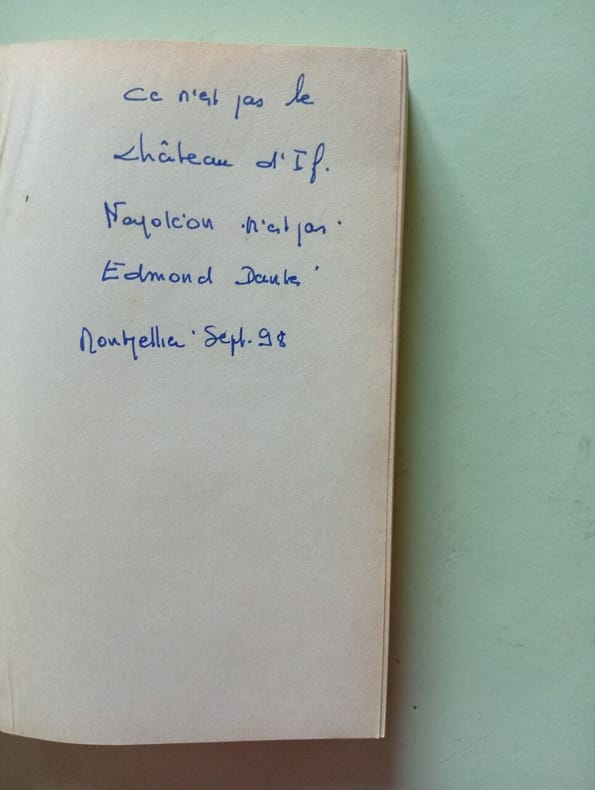 Ce n'est pas le
château d'If.
Napoléon n'est pas
Edmond Dantès
Montpellier Sept. 98